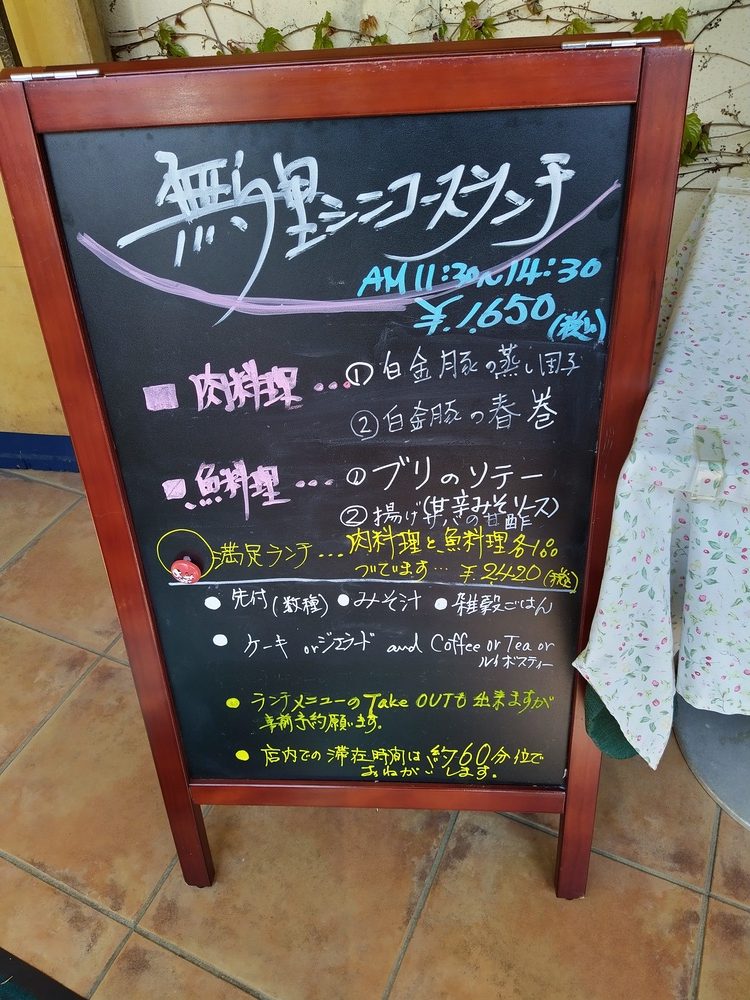 ミニコースランチ
AM 11:30〜14:30
¥.1.650(税込)
■ 肉料理...①白金豚の蒸し団子
②白金豚の春巻
■ 魚料理...①ブリのソテー
(甘辛みそソース)
②揚げサバの甘酢
満足ランチ...肉料理と魚料理各1品
づでます...¥.2420(税込)
●先付(数種) ●みそ汁 ●雑穀ごはん
●ケーキ orジェラード and Coffee or Tea or
ルイボスティー
●ランチメニューのTake OUTも出来ますが
事前予約願います。
●店内での滞在時間は約60分位で
おねがいします。